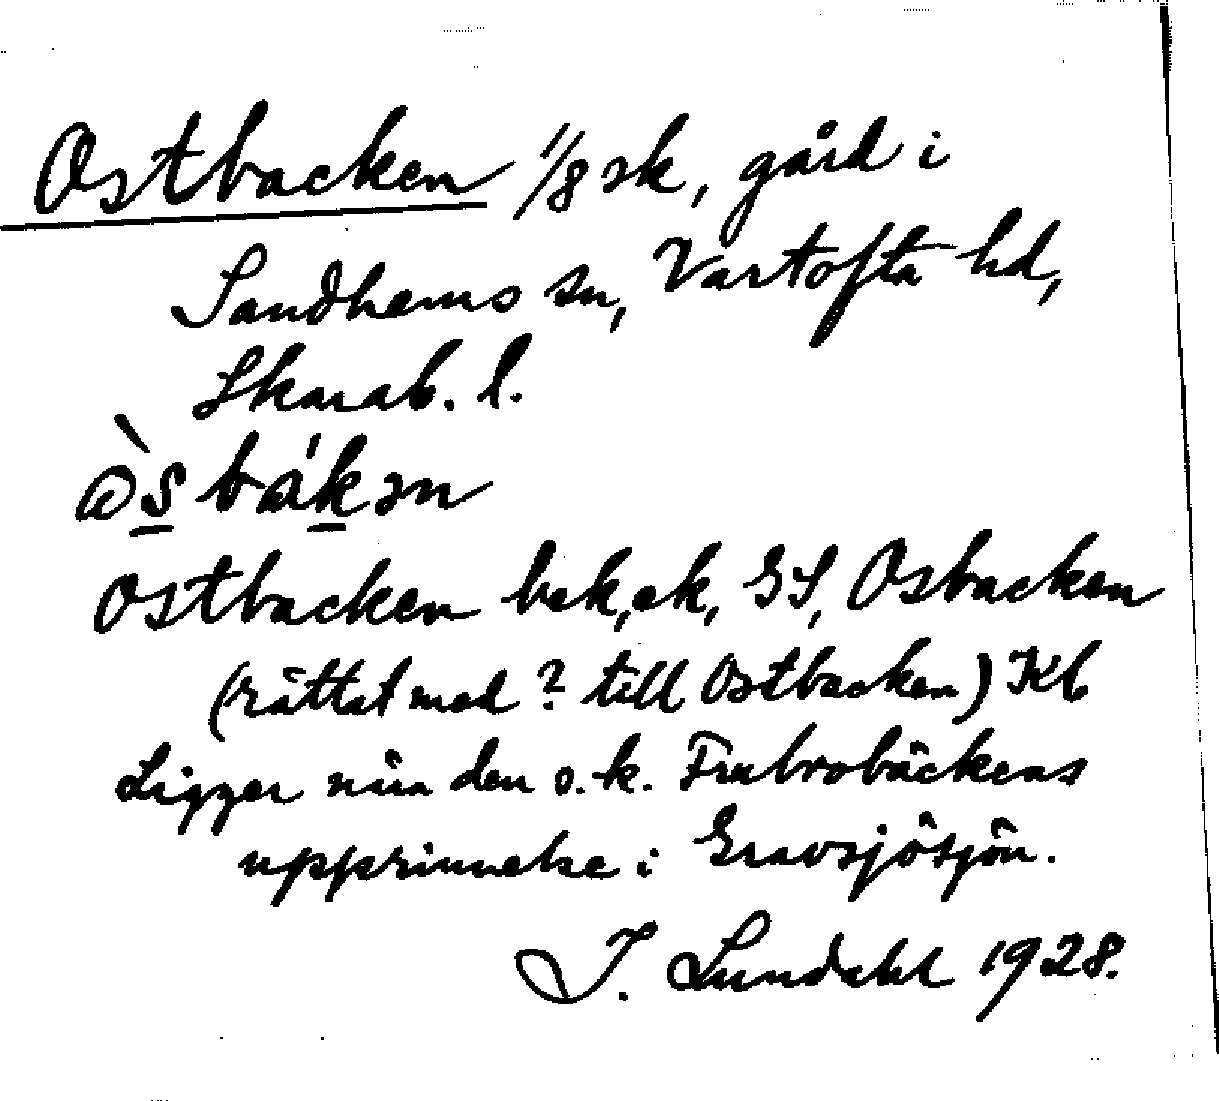 Ostbacken 1/8 sk, gård i
Sandhems sn, Vartofta hd,
Skarab. l.
òs bákən
Ostbacken bek, ek, GS, Osbacken
(rättat med ? till Ostbacken) Kb
Ligger nära den s.k. Frubrobäckens
upprinnelse i Gravsjösjön.
I. Lundahl 1928.